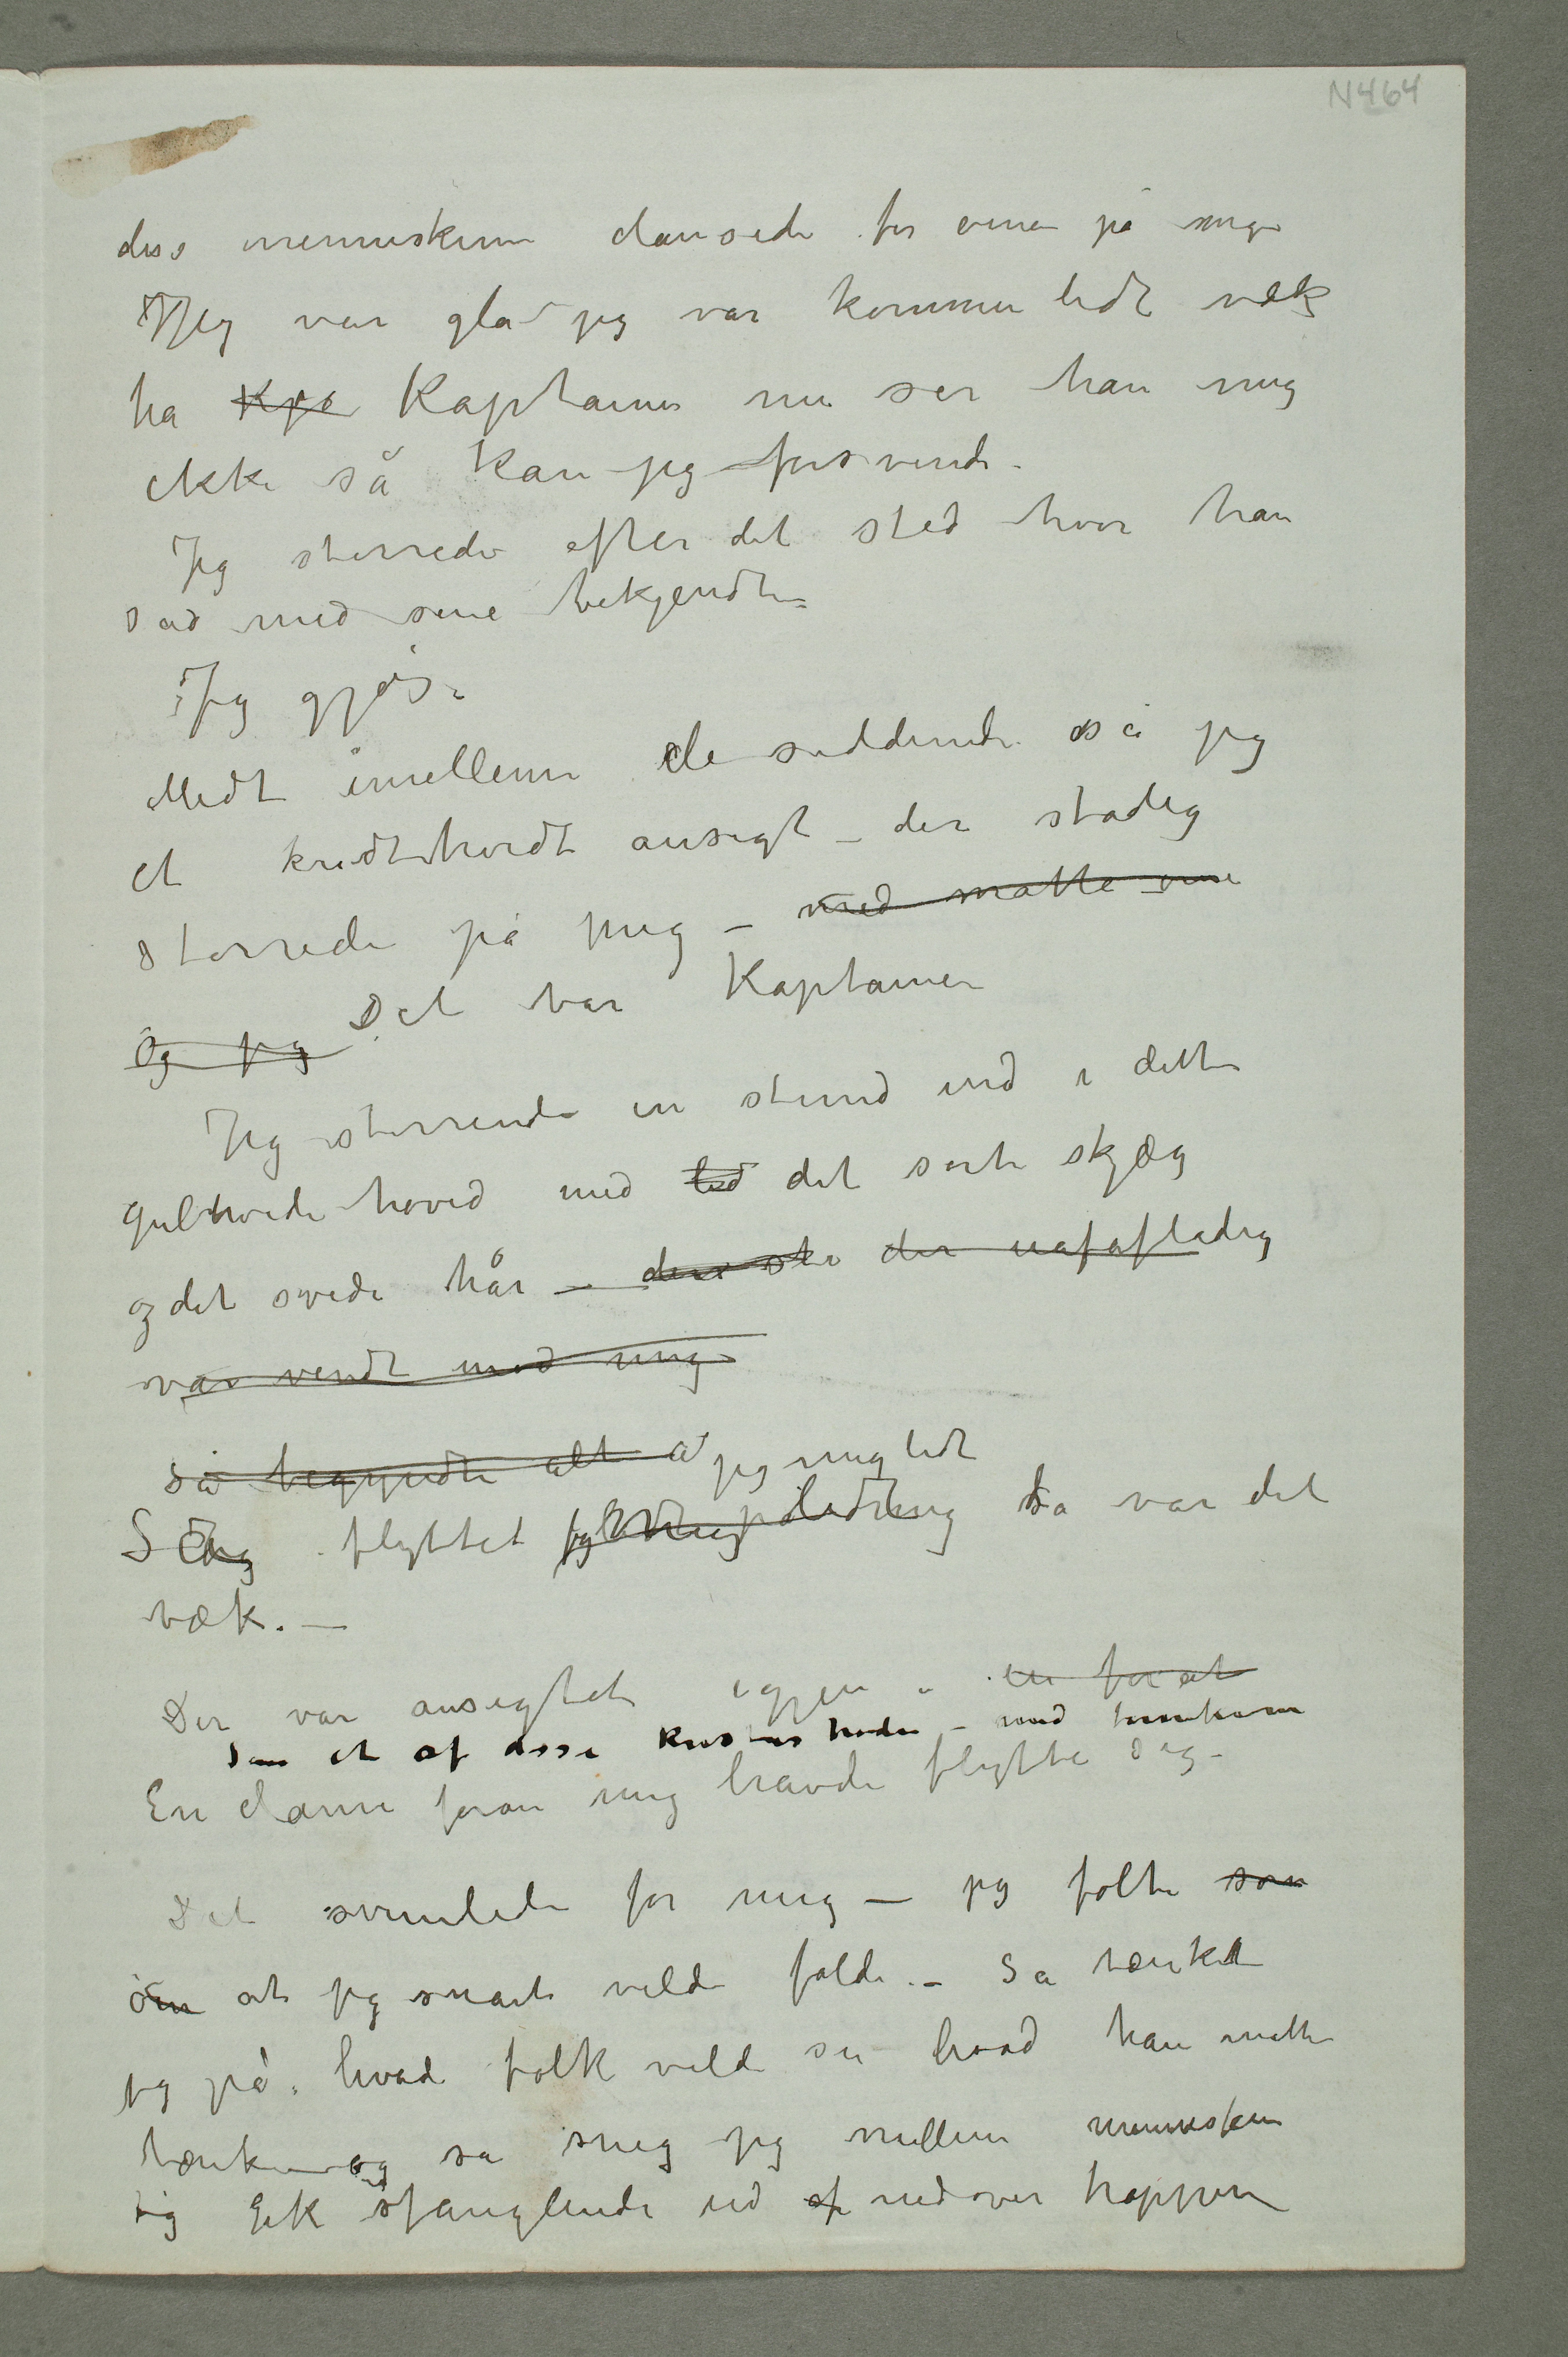 N464
diss menneskene dansede for øinene på mig
Jeg var glad jeg var kommen lidt væk
fra Kpa Kaptainen nu ser han mig
ikke så kan jeg forsvinde.
Jeg stirrede efter det sted hvor han
sad med sine bekjendte
Jeg gjøs.
Midt imellem de siddende så jeg
et kridthvidt ansigt – der stadig
stirrede på mig – med matte øine
Og jeg Det var Kaptainen
Jeg stirrende en stund ind i dette
gulhvide hoved med det sorte skjæg
og det svede hår – der uafafladig
var vendt mod mig
så begyndte alt a jeg mig lidt
Så flyttet jeg mig så var det
væk. –
Der var ansigtet igjen
som et af disse kristus hoder – med tornekrone
En dame foran mig havde flytte sig –
Det svimlede for mig – jeg følte som
om at jeg snart vilde falde. – Så tænkte
jeg på hvad folk vilde si hvad han måtte
tænke – og så sneg jeg mellem menneskene
og gik sjanglende ud af nedover trappen